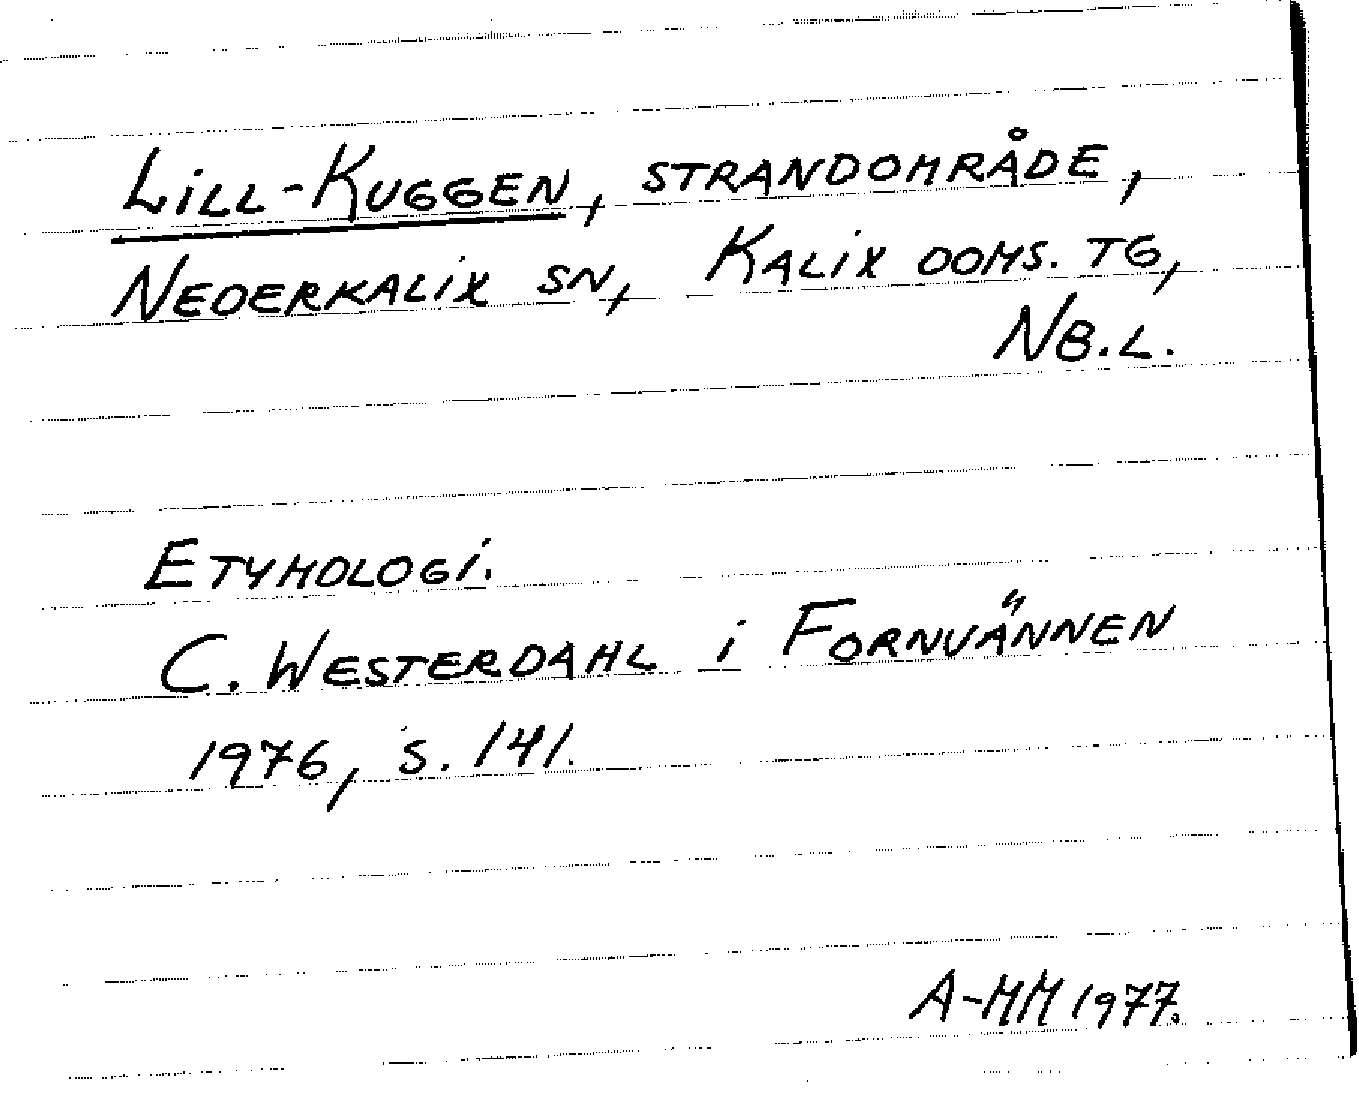 Lill-Kuggen, strandområde,
Nederkalix sn, Kalix doms. tg,
Nb.l.
Etymologi.
C. Westerdahl i Fornvännen
1976, s. 141.
A-MM 1977.